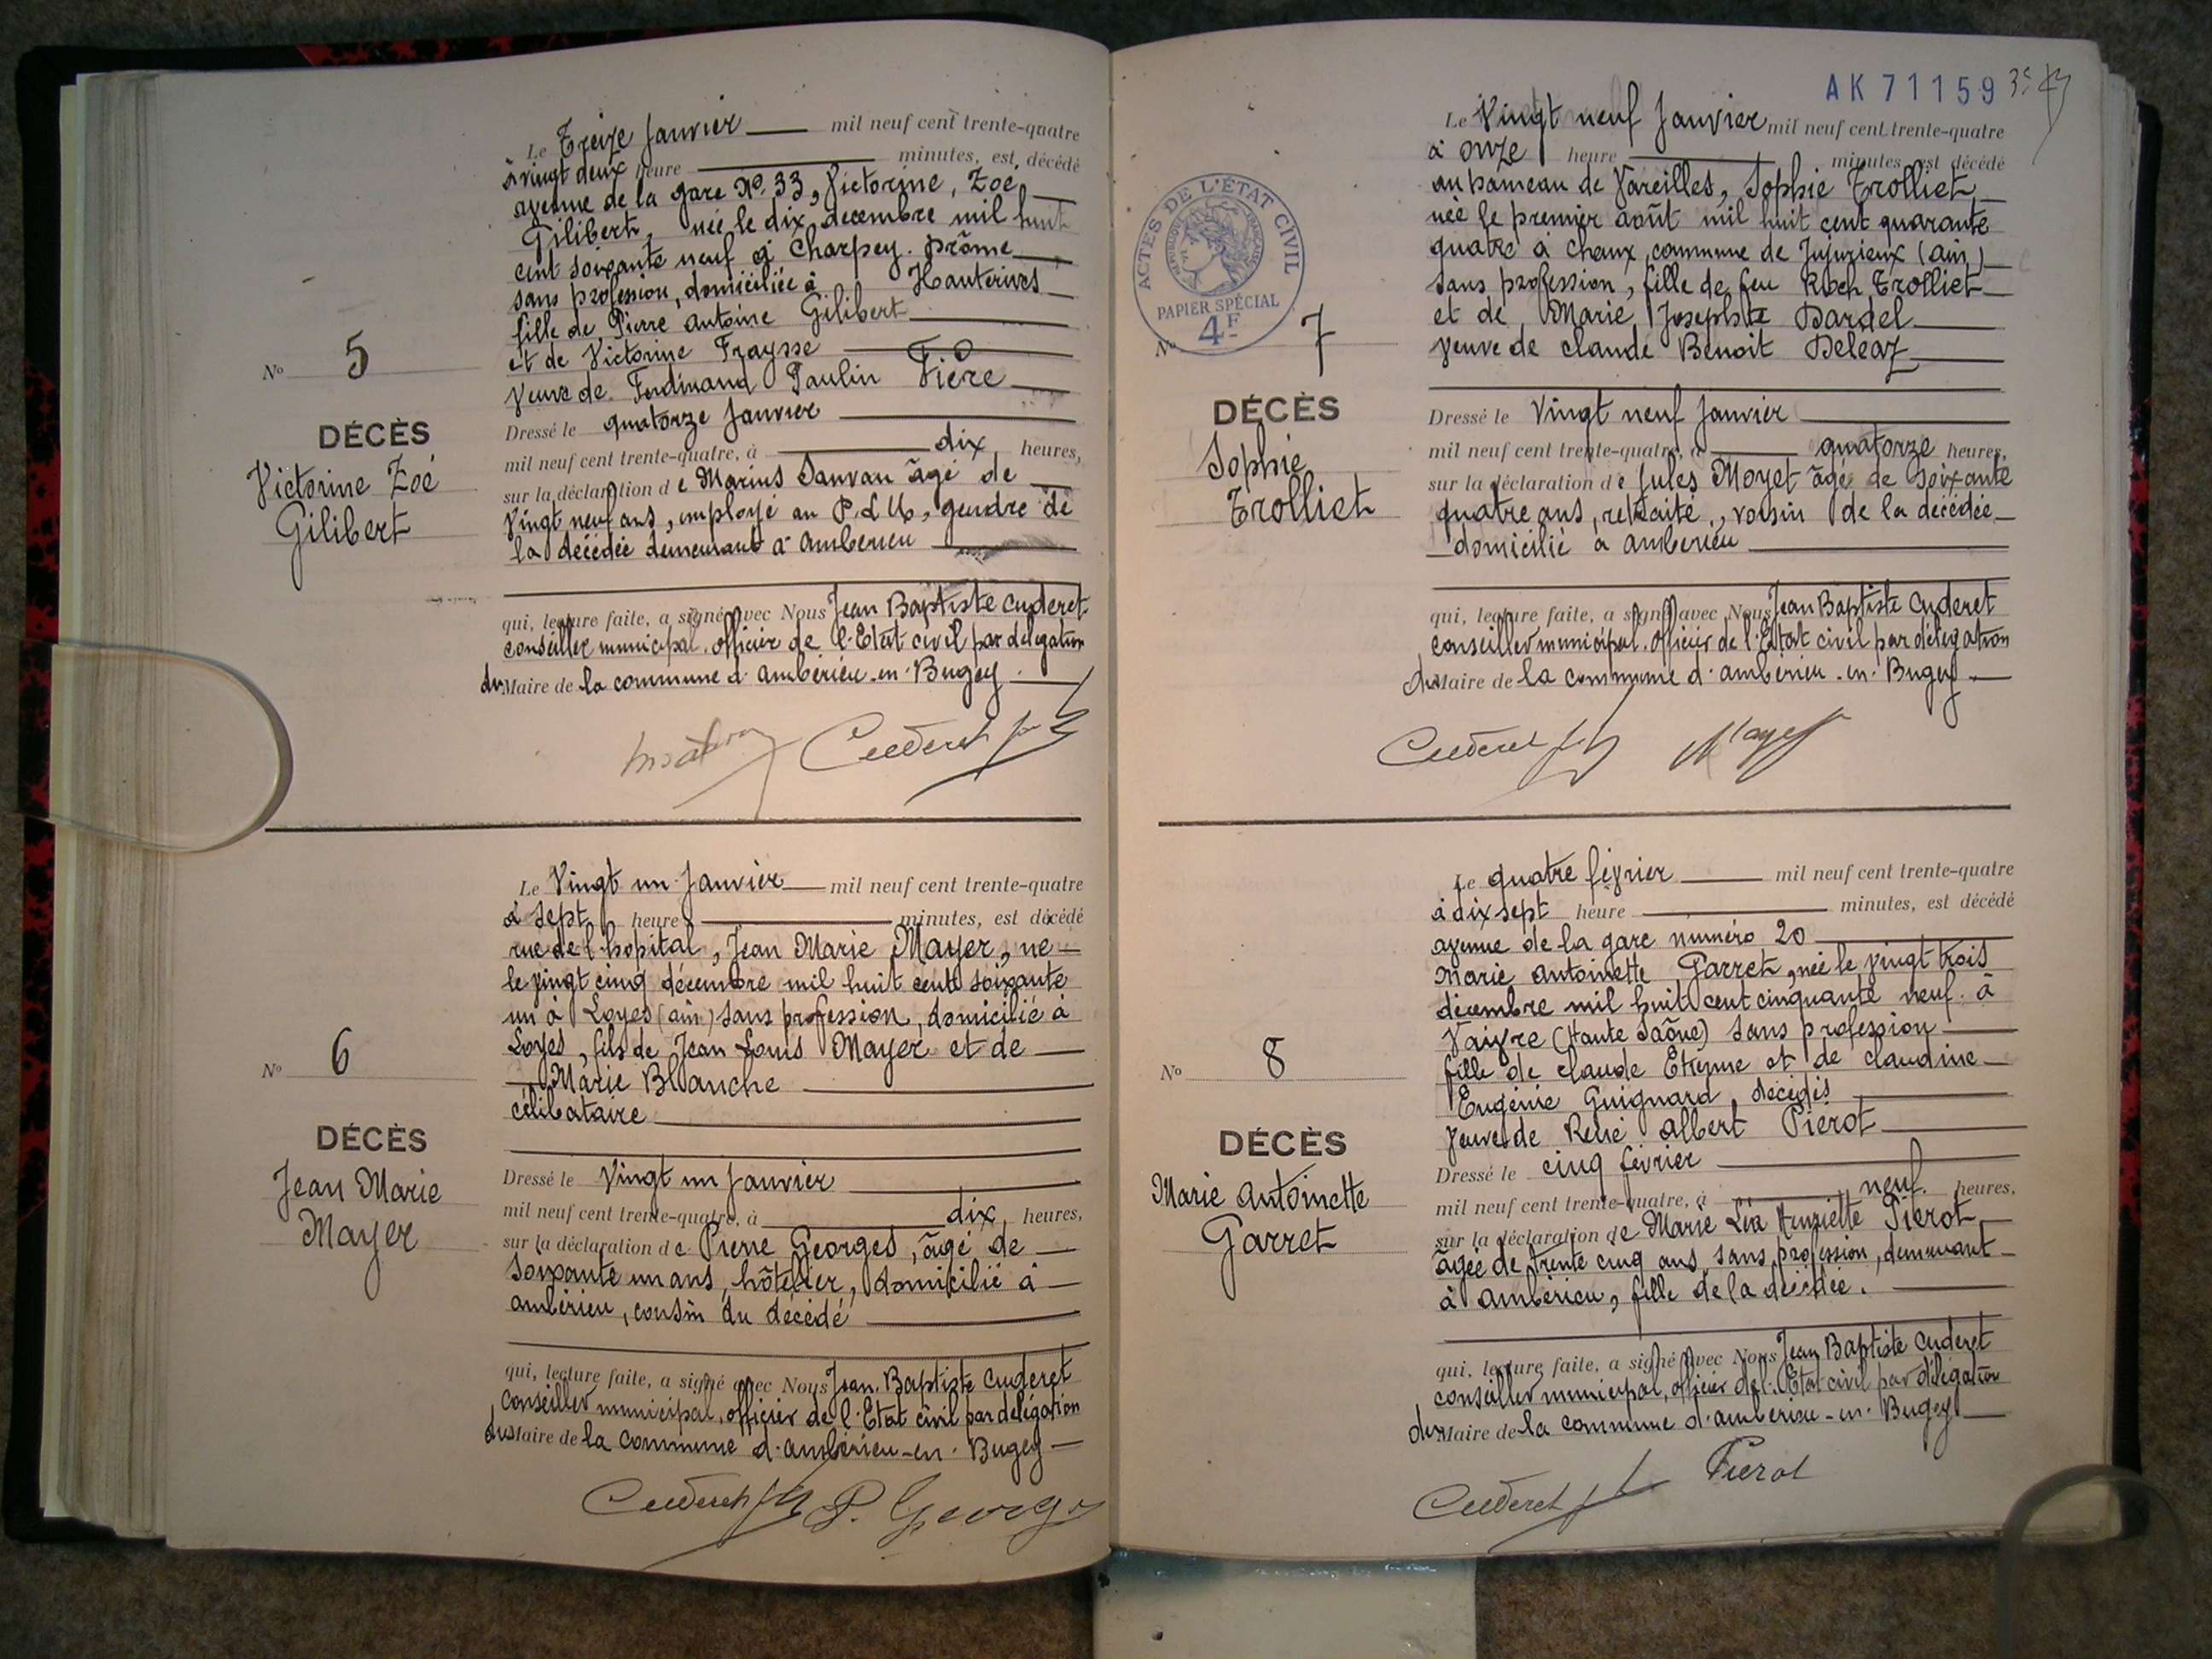 Le Treize Janvier mil neuf cent trente-quatre
à vingt deux heure minutes, est décédé
avenue de la gare No. 33, Victorine, Zoé
Gilibert, née le dix decembre mil huit
cent soixante neuf à Charpey. Drôme
sans profession, domiciliée à Hauterives
fille de Pierre Antoine Gilibert
et de Victorine Fraysse
Veuve de Ferdinand Paulin Fière
Dressé le quatorze Janvier
mil neuf cent trente-quatre, à dix heures,
sur la déclaration de Marius Sauvan âgé de
Vingt neuf ans, employé au P.L.M., gendre de
la décédée demeurant à Ambérieu
qui, lecture faite, a signé avec Nous Jean Baptiste Cuderet
conseiller municipal. officier de l'Etat civil par delegation
du Maire de la commune d'ambérieu-en-Bugey.
Nº 5
DÉCÈS
Victorine Zoé
Gilibert
Cuderet
Le Vingt un Janvier mil neuf cent trente-quatre
à sept heure minutes, est décédé
rue de l'hopital, Jean Marie Mayer, né
le vingt cinq décembre mil huit cent soixante
un à Loyes (ain) sans profession, domicilié à
Loyes, fils de Jean Louis Mayer et de
Marie Blanche
célibataire
Dressé le Vingt un Janvier
mil neuf cent trente-quatre, à dix heures,
sur la déclaration de Pierre Georges, âgé de
soixante un ans, hôtelier, domicilié à
ambérieu, cousin du décédé
qui, lecture faite, a signé avec Nous Jean Baptiste Cuderet
conseiller municipal, officier de l'Etat civil par delégation
du Maire de la commune d'ambérieu-en-Bugey
Nº 6
DÉCÈS
Jean Marie
Mayer
Cuderet P. Georges
AK 71159
ACTES DE L'ÉTAT CIVIL
PAPIER SPÉCIAL
4F
Le Vingt neuf Janvier mil neuf cent trente-quatre
à onze heure minutes est décédé
au hameau de Vareilles, Sophie Trolliet
née le premier août mil huit cent quarante
quatre à Chaux, commune de Jujurieux (ain)
sans profession, fille de feu Roch Trolliet
et de Marie Josephte Dardel
veuve de Claude Benoit Deléaz
Dressé le Vingt neuf Janvier
mil neuf cent trente-quatre, à quatorze heures,
sur la déclaration de Jules Moyet âgé de soixante
quatre ans, retraité, voisin de la décédée
domicilié à ambérieu
qui, lecture faite, a signé avec Nous Jean Baptiste Cuderet
conseiller municipal. officier de l'Etat civil par délégation
du Maire de la commune d'ambérieu-en-Bugey
Nº 7
DÉCÈS
Sophie
Trolliet
Cuderet
Le quatre février mil neuf cent trente-quatre
à dix sept heure minutes, est décédé
avenue de la gare numéro 20
Marie Antoinette Garret, née le vingt trois
décembre mil huit cent cinquante neuf à
Vaivre (Haute Saône) sans profession
fille de Claude Etienne et de Claudine
Eugénie Guignard, décédés
veuve de René Albert Piérot
Dressé le cinq février
mil neuf cent trente-quatre, à neuf heures,
sur la déclaration de Marie Léa Henriette Piérot
âgée de trente cinq ans, sans profession, demeurant
à ambérieu, fille de la décédée.
qui, lecture faite, a signé avec Nous Jean Baptiste Cuderet
conseiller municipal, officier de l'Etat civil par délégation
du Maire de la commune d'ambérieu-en-Bugey
Nº 8
DÉCÈS
Marie Antoinette
Garret
Cuderet Pierot